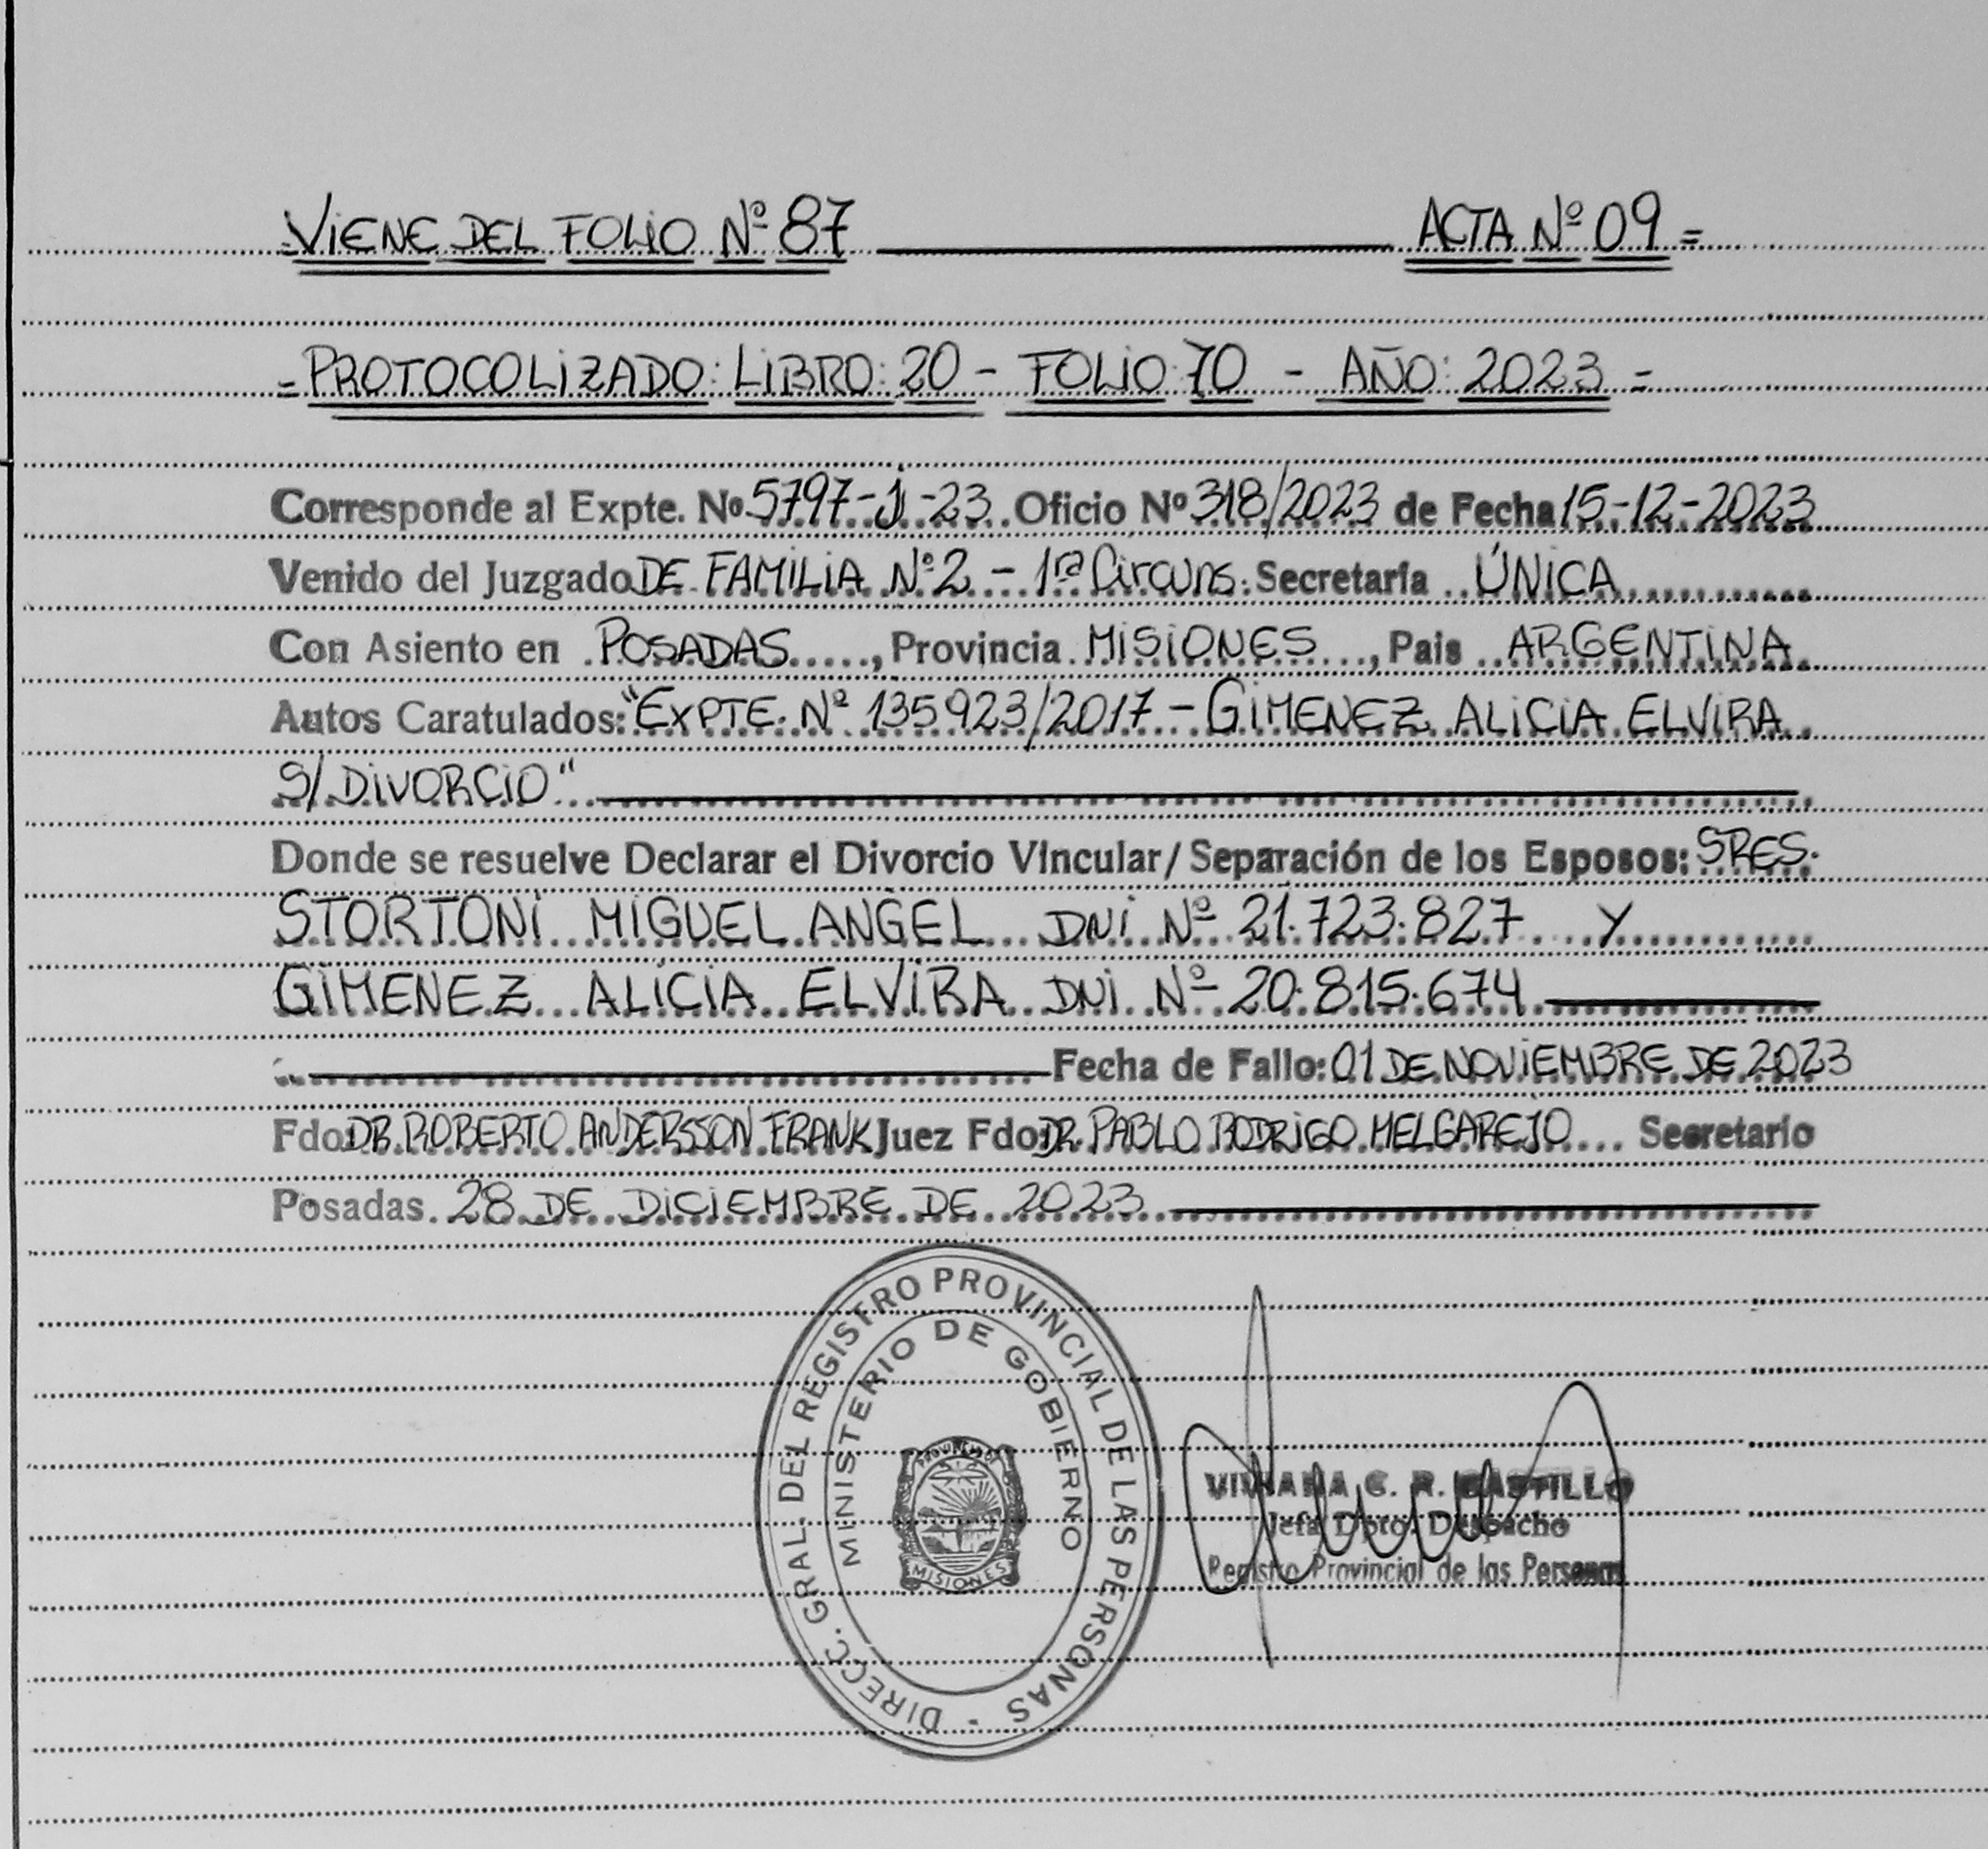 =VIENE DEL FOLIO Nº 87 ACTA Nº 09=
=PROTOCOLIZADO: LIBRO: 20 - FOLIO: 70 - AÑO: 2023 =
Corresponde al Expte. Nº 5797-J-23 Oficio Nº 318/2023 de Fecha 15-12-2023
Venido del Juzgado DE FAMILIA Nº 2 - 1ra Circuns. Secretaría ÚNICA
Con Asiento en POSADAS, Provincia MISIONES, Pais ARGENTINA
Autos Caratulados: "EXPTE. Nº 135923/2017 - GIMENEZ ALICIA ELVIRA
S/ DIVORCIO"
Donde se resuelve Declarar el Divorcio Vincular/ Separación de los Esposos: SRES.
STORTONI MIGUEL ANGEL DNI Nº 21.723.827 Y
GIMENEZ ALICIA ELVIRA DNI Nº 20.815.674
Fecha de Fallo: 01 DE NOVIEMBRE DE 2023
Fdo DR. ROBERTO ANDERSSON FRANK Juez Fdo DR. PABLO RODRIGO MELGAREJO Secretario
Posadas. 28 DE DICIEMBRE DE 2023
DIRECC. GRAL. DEL REGISTRO PROVINCIAL DE LAS PERSONAS -
MINISTERIO DE GOBIERNO
MISIONES
VIVIANA C. R. CASTILLO
Jefa Dpto. Despacho
Registro Provincial de las Personas